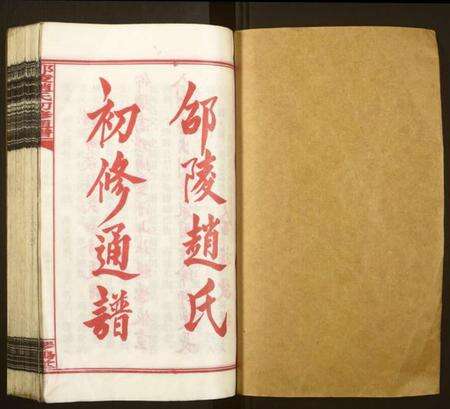 邵陵趙氏
初修通譜